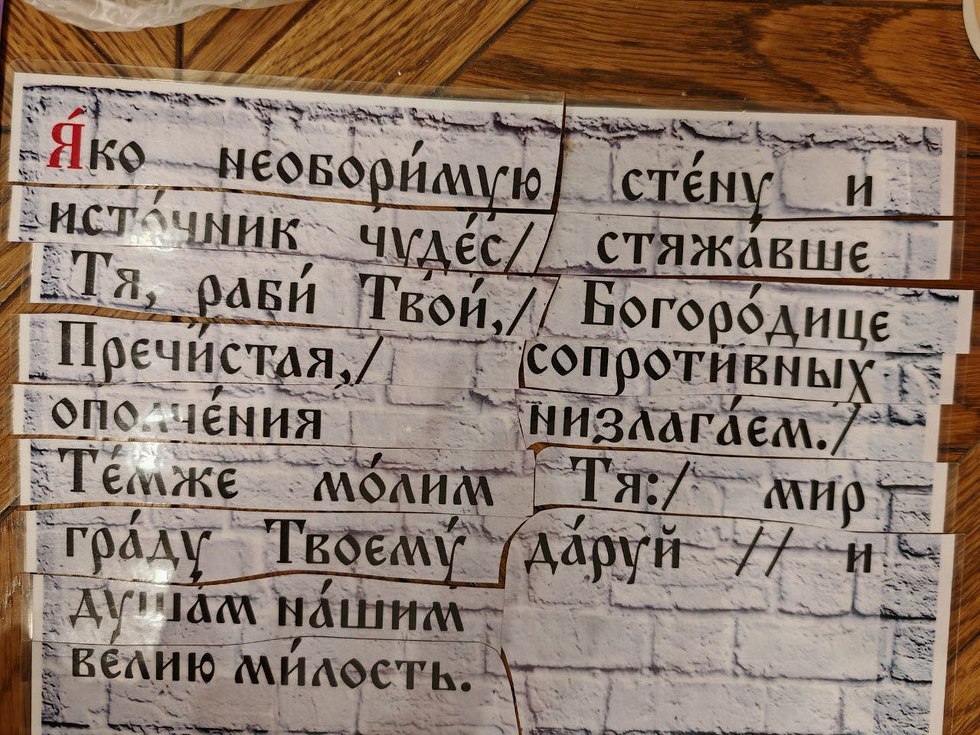 Я́ко необори́мую сте́ну и
исто́чник чуде́с/ стяжа́вше
Тя, раби́ Твои́,/ Богоро́дице
Пречи́стая,/ сопроти́вных
ополче́ния низлага́ем./
Те́мже мо́лим Тя:/ мир
гра́ду Твоему́ да́руй // и
душа́м на́шим
ве́лию ми́лость.